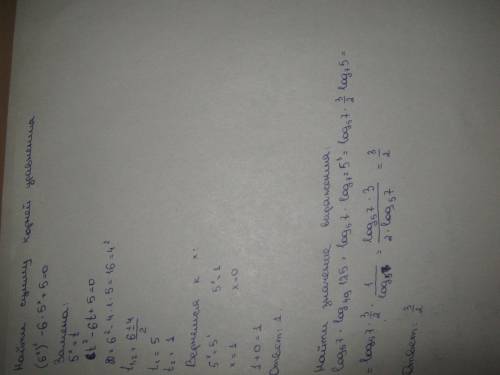 Найти сумму корней уравнения
(5ˣ)² - 6·5ˣ + 5 = 0
Замена:
5ˣ = t
t² - 6t + 5 = 0
D = 6² - 4·1·5 = 16 = 4²
t₁,₂ = (6±4)/2
t₁ = 5
t₂ = 1
Вернемся к x:
5ˣ = 5¹ 5ˣ = 1
x = 1 x = 0
1 + 0 = 1
Ответ: 1.
Найти значение выражения:
log₅7 · log₄₉125 = log₅7 · log₇²5³ = log₅7 · 3/2 log₇5 =
= log₅7 · 3/2 · 1/log₅7 = (log₅7 · 3)/(2·log₅7) = 3/2
Ответ: 3/2